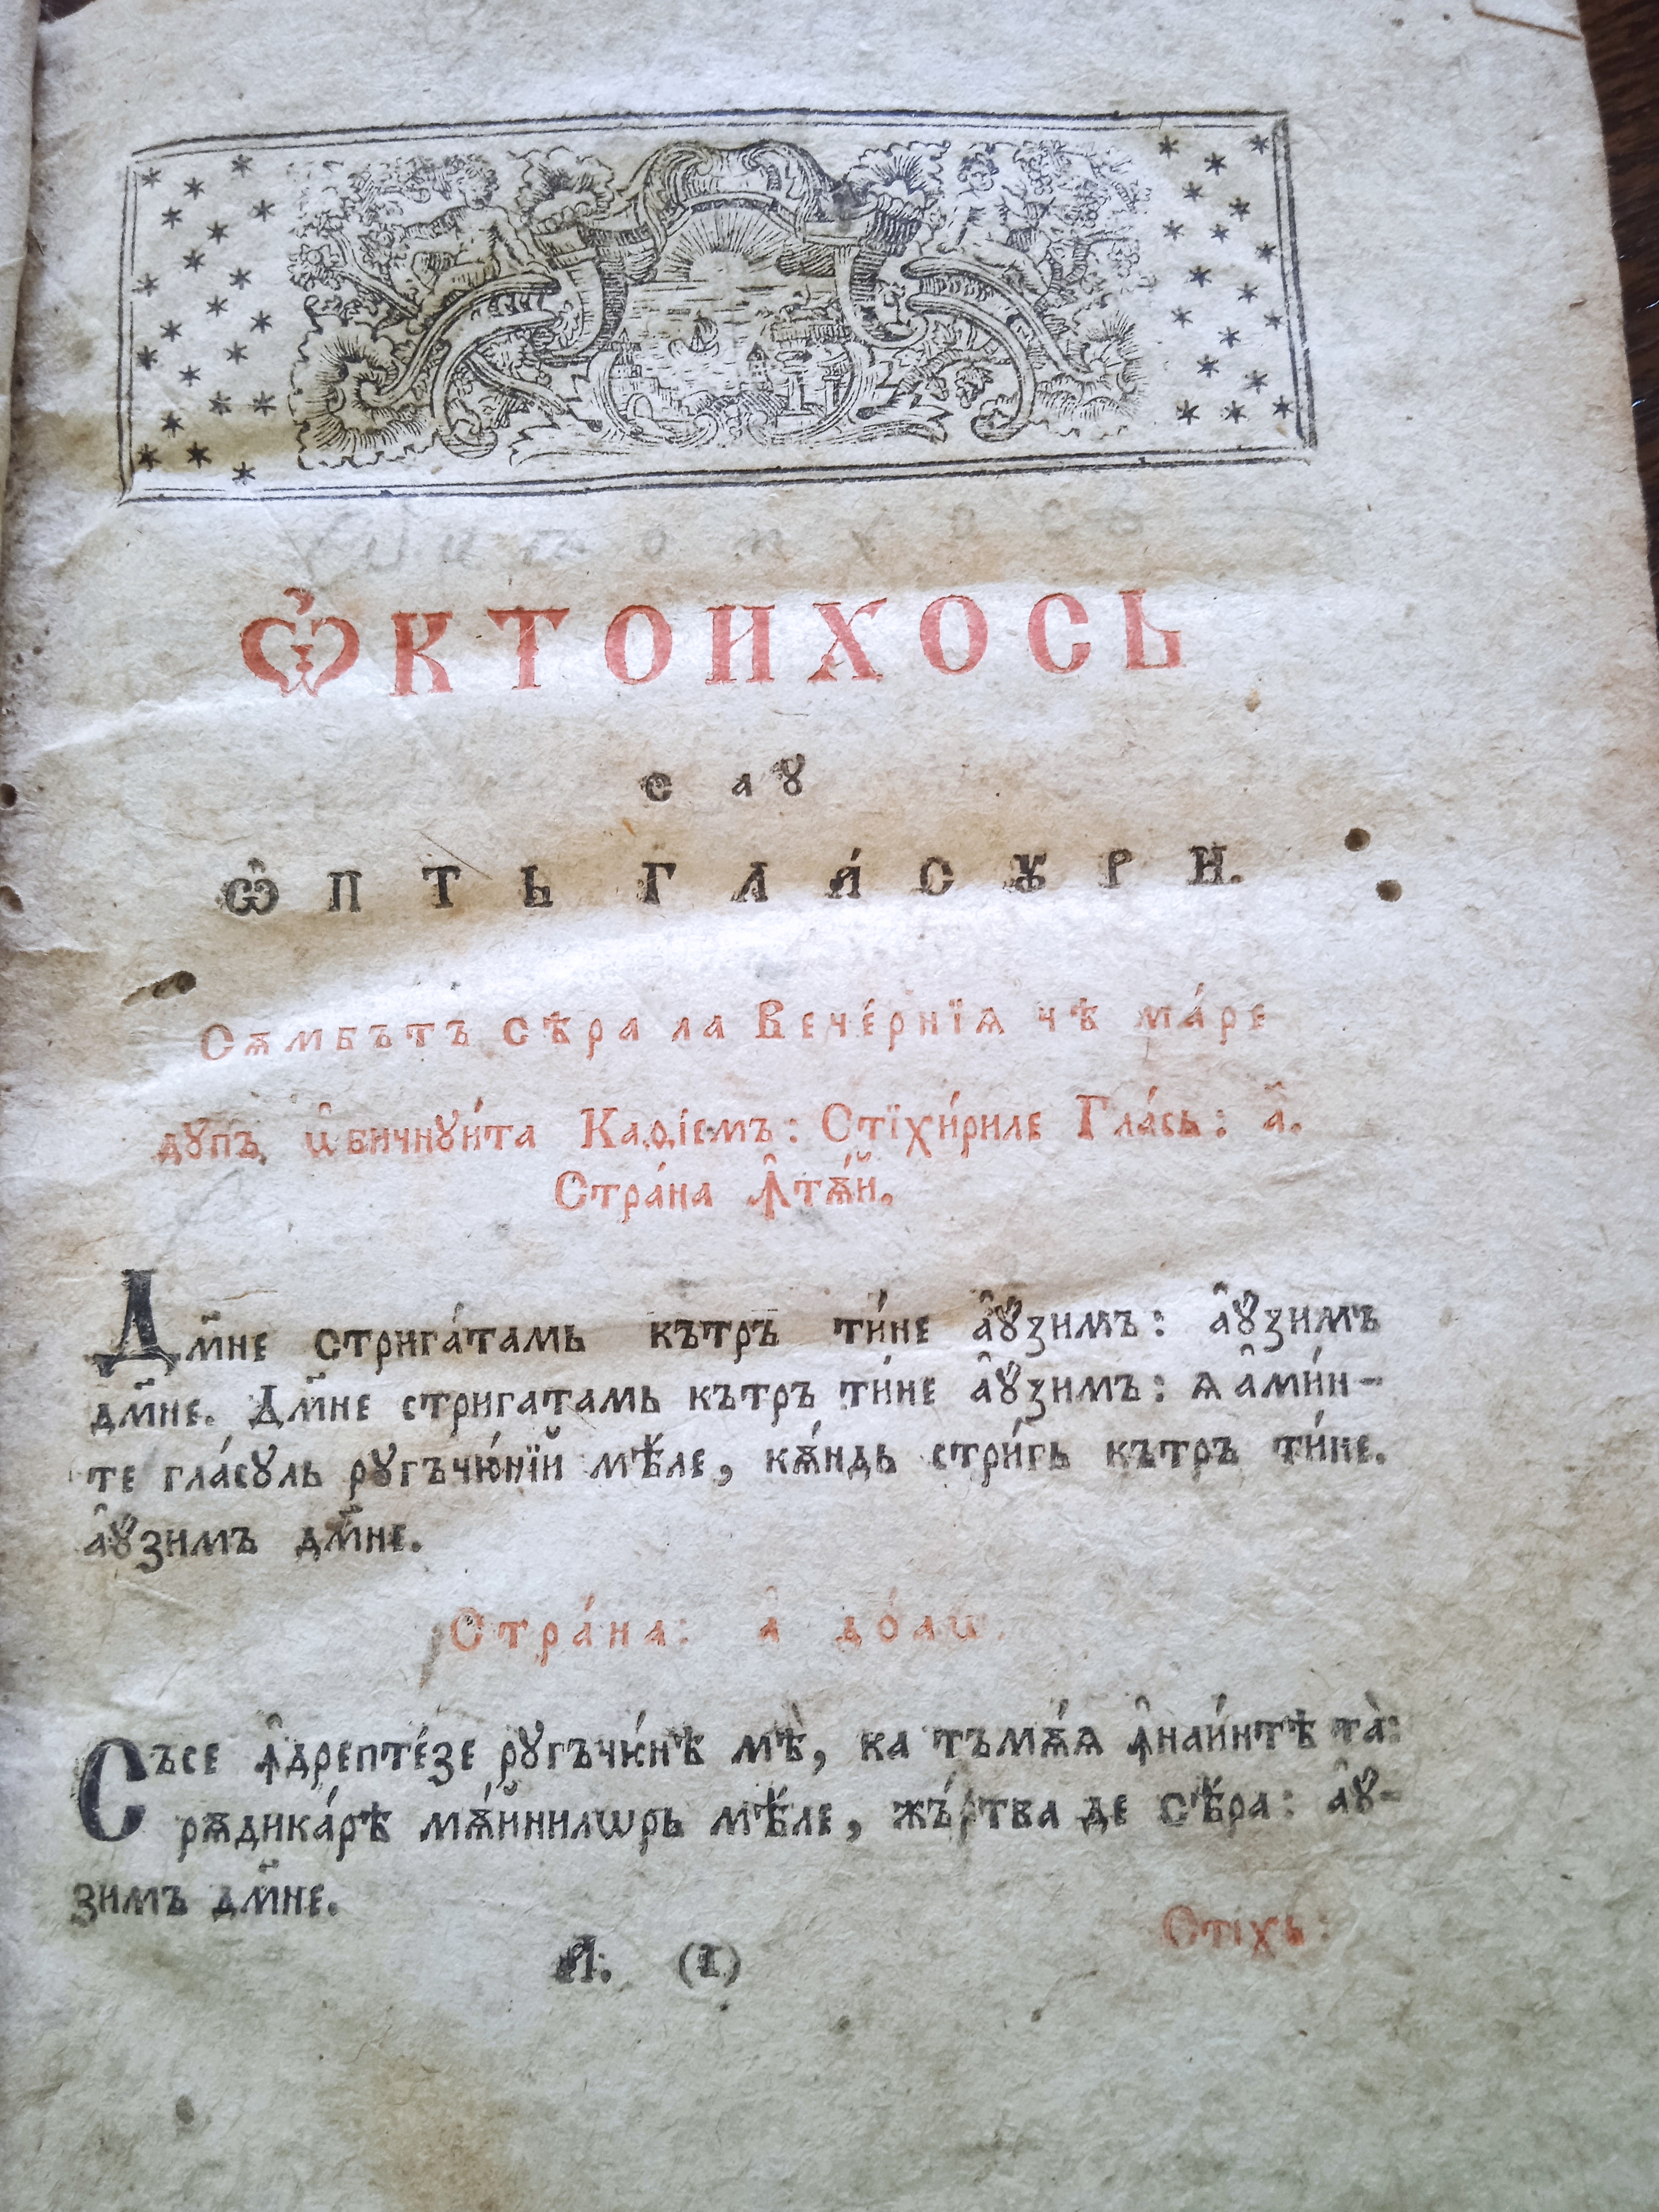 Ѽ К Т О И Х О С Ь
с а ꙋ
Ѡ҆̑ П Т Ь Г Л А́ С Ꙋ Р И.
Сѫмбътъ сѣра ла Вече́рнїѧ чѣ ма́ре
дꙋпъ ѡ҆бичнꙋи́та Каѳісмъ: Стїхи́риле Гла́сь: а҃.
Стра́на Ꙟ҆тѫ́й.
Дм҃не стрига́тамь кътръ ти́не а҆ꙋзимъ: а҆ꙋзимъ
дм҃не. Дм҃не стригатамь кътръ ти́не а҆ꙋзимъ: ѧ а҆ми́н-
те гла́сꙋль рꙋгъчю́нїй мѣ́ле, кѫ́ндь стри́гь кътръ ти́не.
а҆ꙋзимъ дм҃не.
Стра́на: а҆ до́аѡ.
Съсе ꙟ҆дрепте́зе рꙋгъчю́нѣ мѣ̀, ка тъмѫ́ѧ ꙟ҆наи́нтѣ та̀:
рѫдика́рѣ мѫ́йнилѡрь мѣ́ле, жъ́ртва де сѣ́ра: а҆ꙋ-
зимъ дм҃не.
Стіхъ:
А҃. (1)